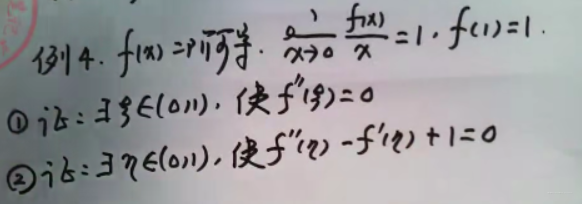 例4. f(x)二阶可导. lim x→0 f(x)/x = 1, f(1)=1.
① 证: ∃ξ∈(0,1), 使f''(ξ)=0
② 证: ∃η∈(0,1), 使f''(η)-f'(η)+1=0